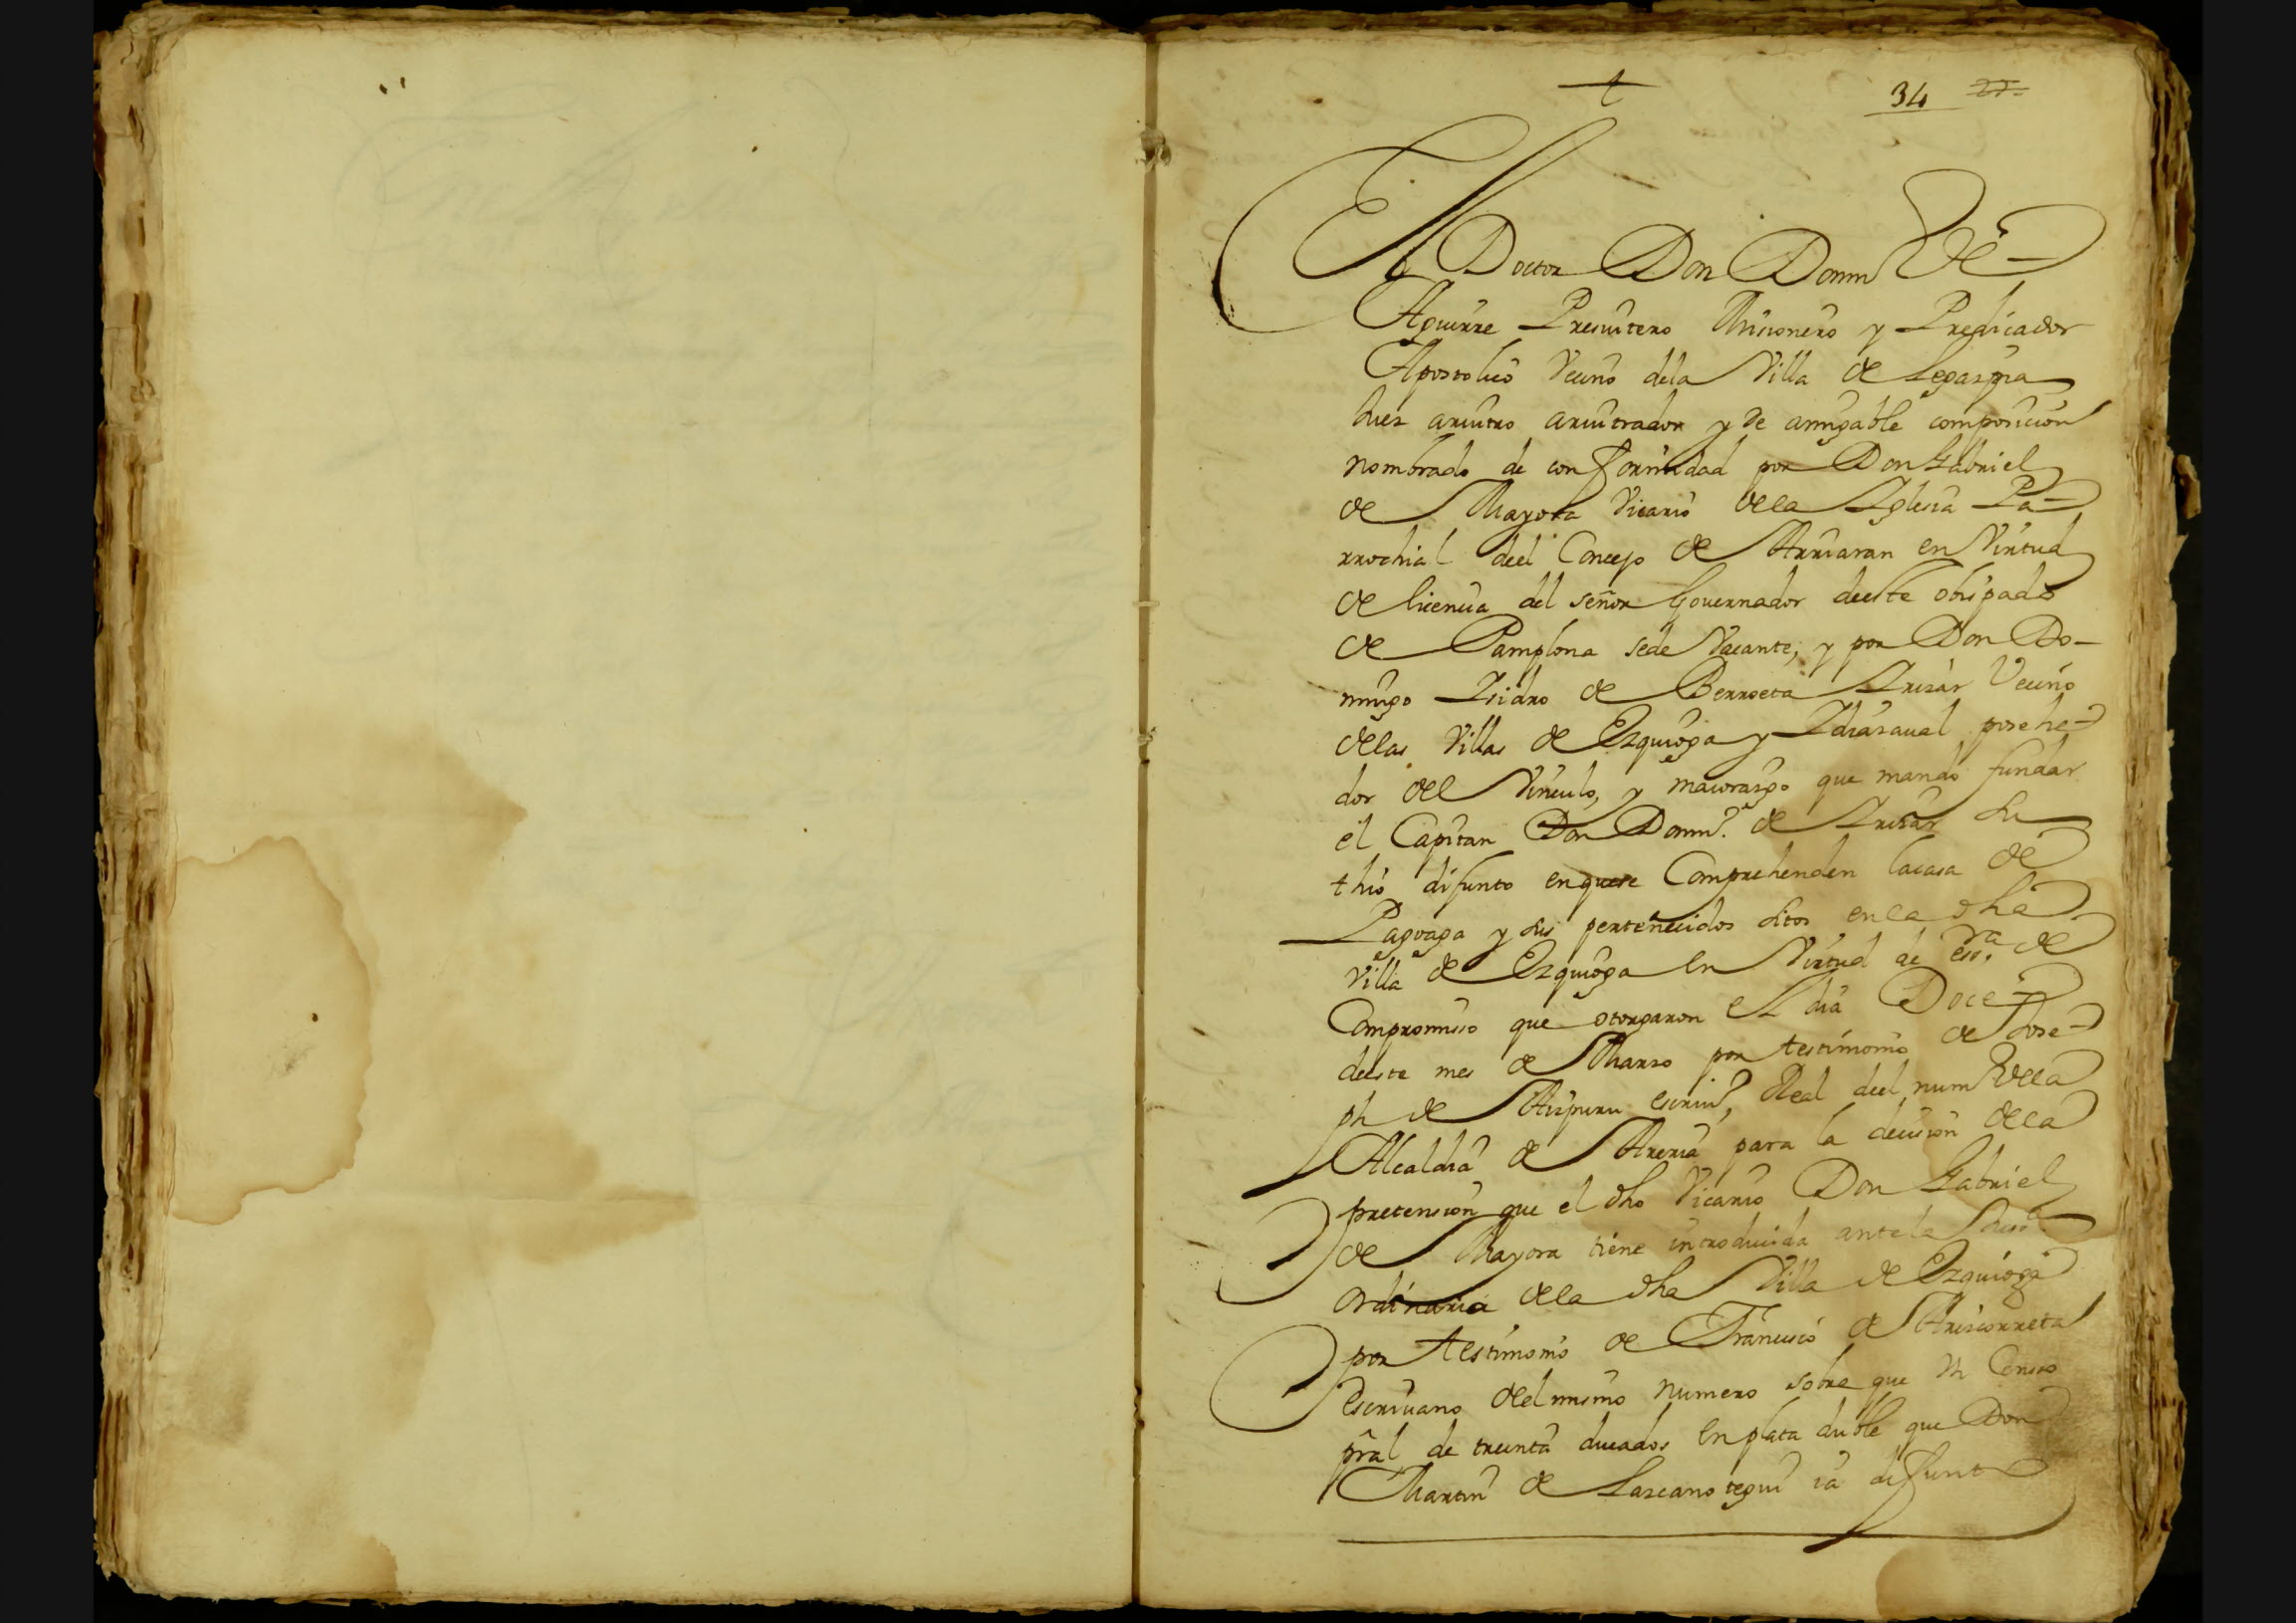 †
34 27
El Doctor Don Domin de
Aguirre Presuitero Misionero y Predicador
Apostolico Vecino dela Villa de Legazpia
Juez aruitro aruitrador y de amigable composicion
nombrado de conformidad por Don Gabriel
de Mayora Vicario dela Iglesia Pa-
rrochial deel Concejo de Arriaran en Virtud
de licencia del señor Gouernador deeste obispado
de Pamplona sede Vacante, y por Don Do-
mingo Isidro de Berroeta Irizar Vecino
delas Villas de Ezquioga y Idiazaual posehe-
dor del Vinculo, y maiorazgo que mando fundar
el Capitan Don Domin.º de Irizar Su
thio difunto enquese Comprehenden lacasa de
Paguaga y sus pertenecidos sitos enla dha
Villa de Ezquioga en Virtud de ess.ra de
Compromiso que otorgaron El dia Doce
deeste mes de Marzo por testimonio de Jose-
ph de Aizpuru escriu.º Real deel num.º dela
Alcaldia de Areria para la decision dela
pretension que el dho Vicario Don Gabriel
de Mayora tiene introducida antela Jusª
ordinaria dela dha Villa de Ezquioga
por testimonio de Francisco de Ariscorreta
Escriuano del mismo numero sobre que Un Censo
pral de treinta ducados En plata doble que Don
Martin de Lazcanotegui ia difunto